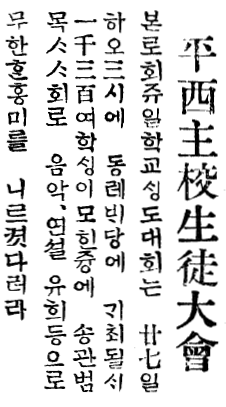 平西主校生徒大會
본로회쥬일학교싱도대회는 廿七일
하오三시에 동례빈당에 기최될시
一千三百여학싱이모힌중에 송관범
목스스회로 음악、연설 유희등으로
무한흔흥미를 니르켯다러라